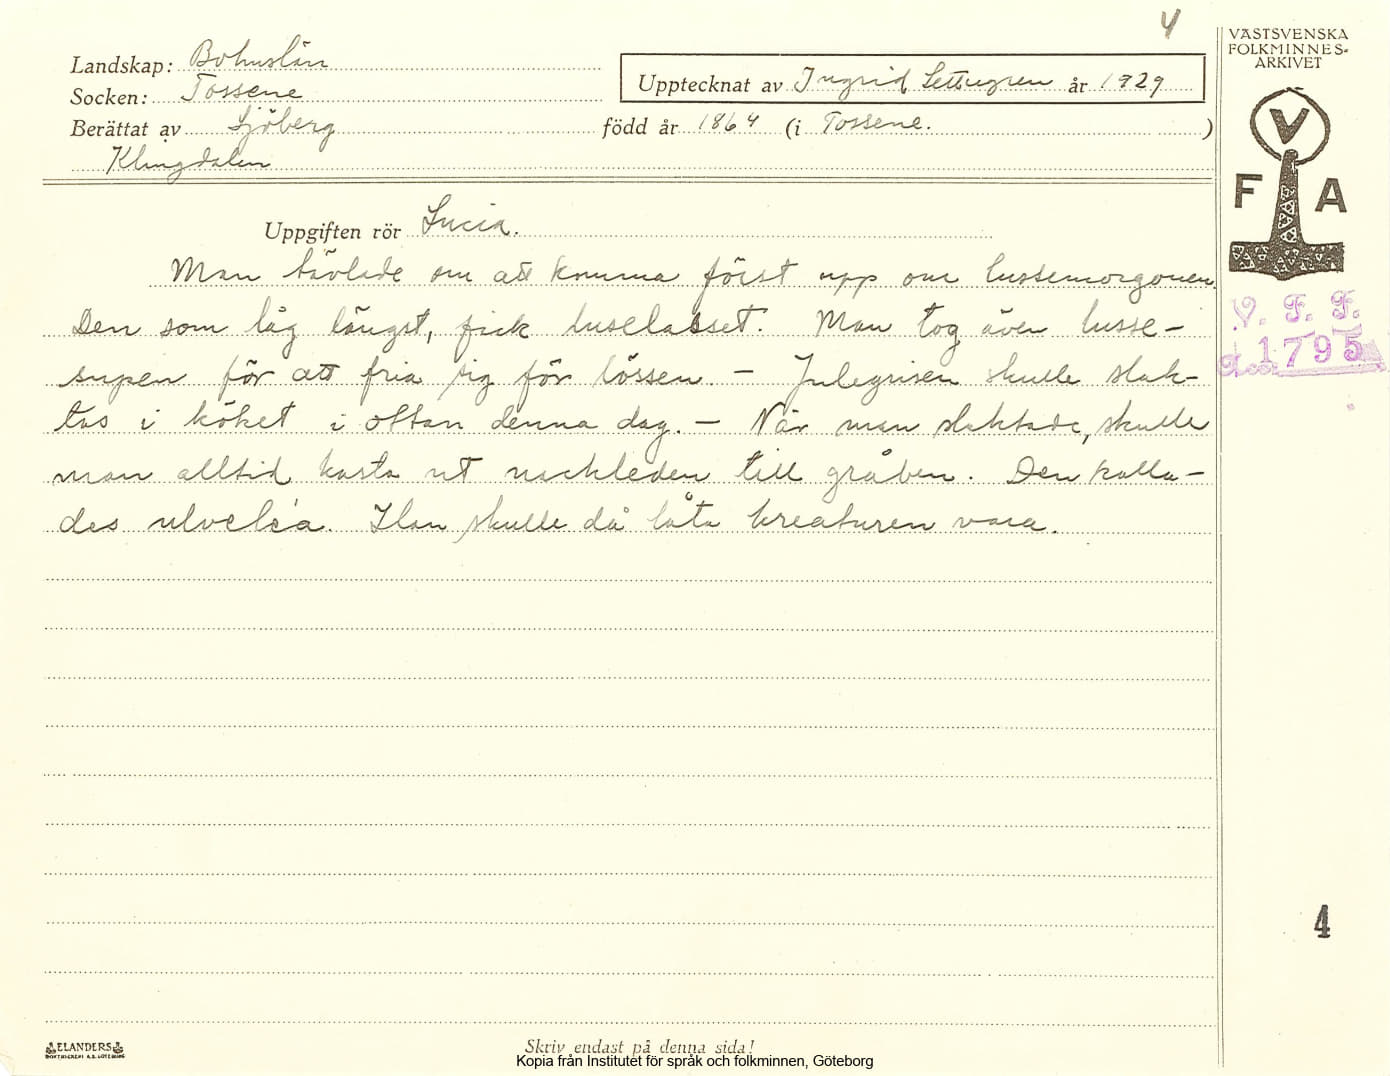 4
VÄSTSVENSKA
FOLKMINNES-
ARKIVET
Landskap: Bohuslän
Socken: Tossene
Upptecknat av Ingrid år 1929
Berättat av Sjöberg född år 1864 (i Tossene. )
Klingdalen
V
F A
Uppgiften rör Lucia.
Man tävlade om att komma först upp om lussemorgonen.
Den som låg längst, fick luselasset. Man tog även lusse-
supen för att fria sig för lössen. – Julegrisen skulle slak-
tas i köket i ottan denna dag. – När man slaktade, skulle
man alltid kasta ut nackleden till gråben. Den kalla-
des ulveléa. Han skulle då låta kreaturen vara.
V. F. F.
1795
4
ELANDERS
BOKTRYCKERI A.B. GÖTEBORG
Skriv endast på denna sida!
Kopia från Institutet för språk och folkminnen, Göteborg